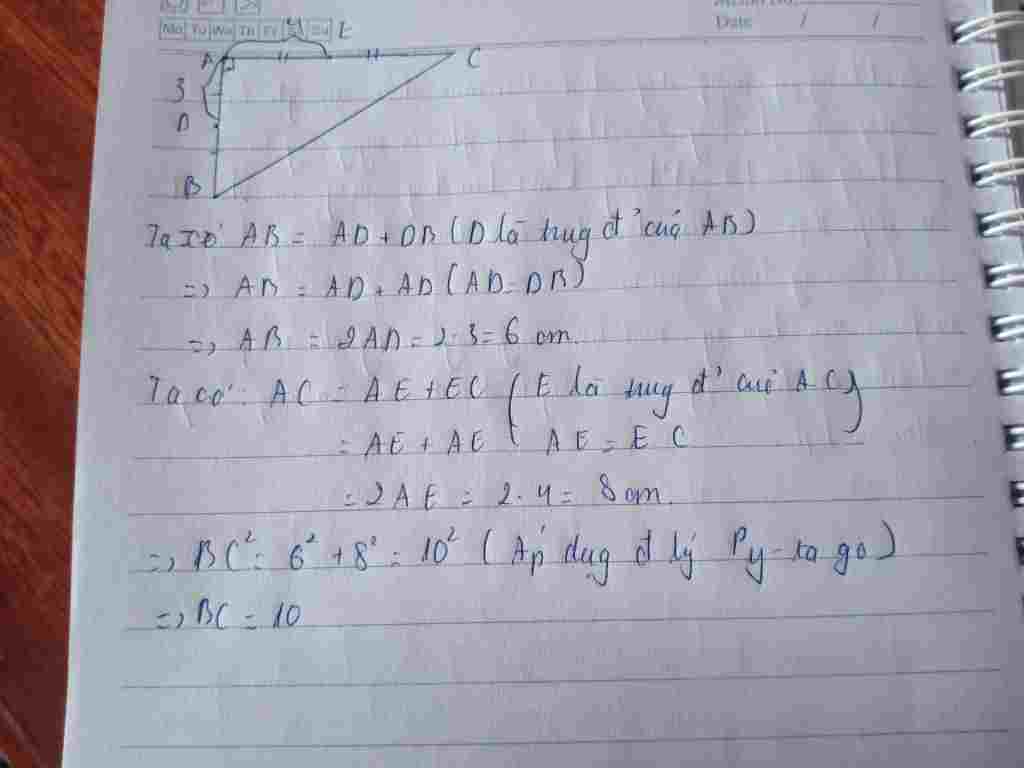 Mo Tu We Th Fr Sa Su
Date / /
4
E
A
C
3
D
B
Ta có AB = AD + DB (D là trug đ' của AB)
=> AB = AD + AD (AD = DB)
=> AB = 2AD = 2.3 = 6 cm.
Ta có: AC = AE + EC (E là trug đ' của AC)
= AE + AE AE = EC
= 2AE = 2.4 = 8 cm.
=> BC² = 6² + 8² = 10² (Áp dụg đ lý Py-ta go)
=> BC = 10